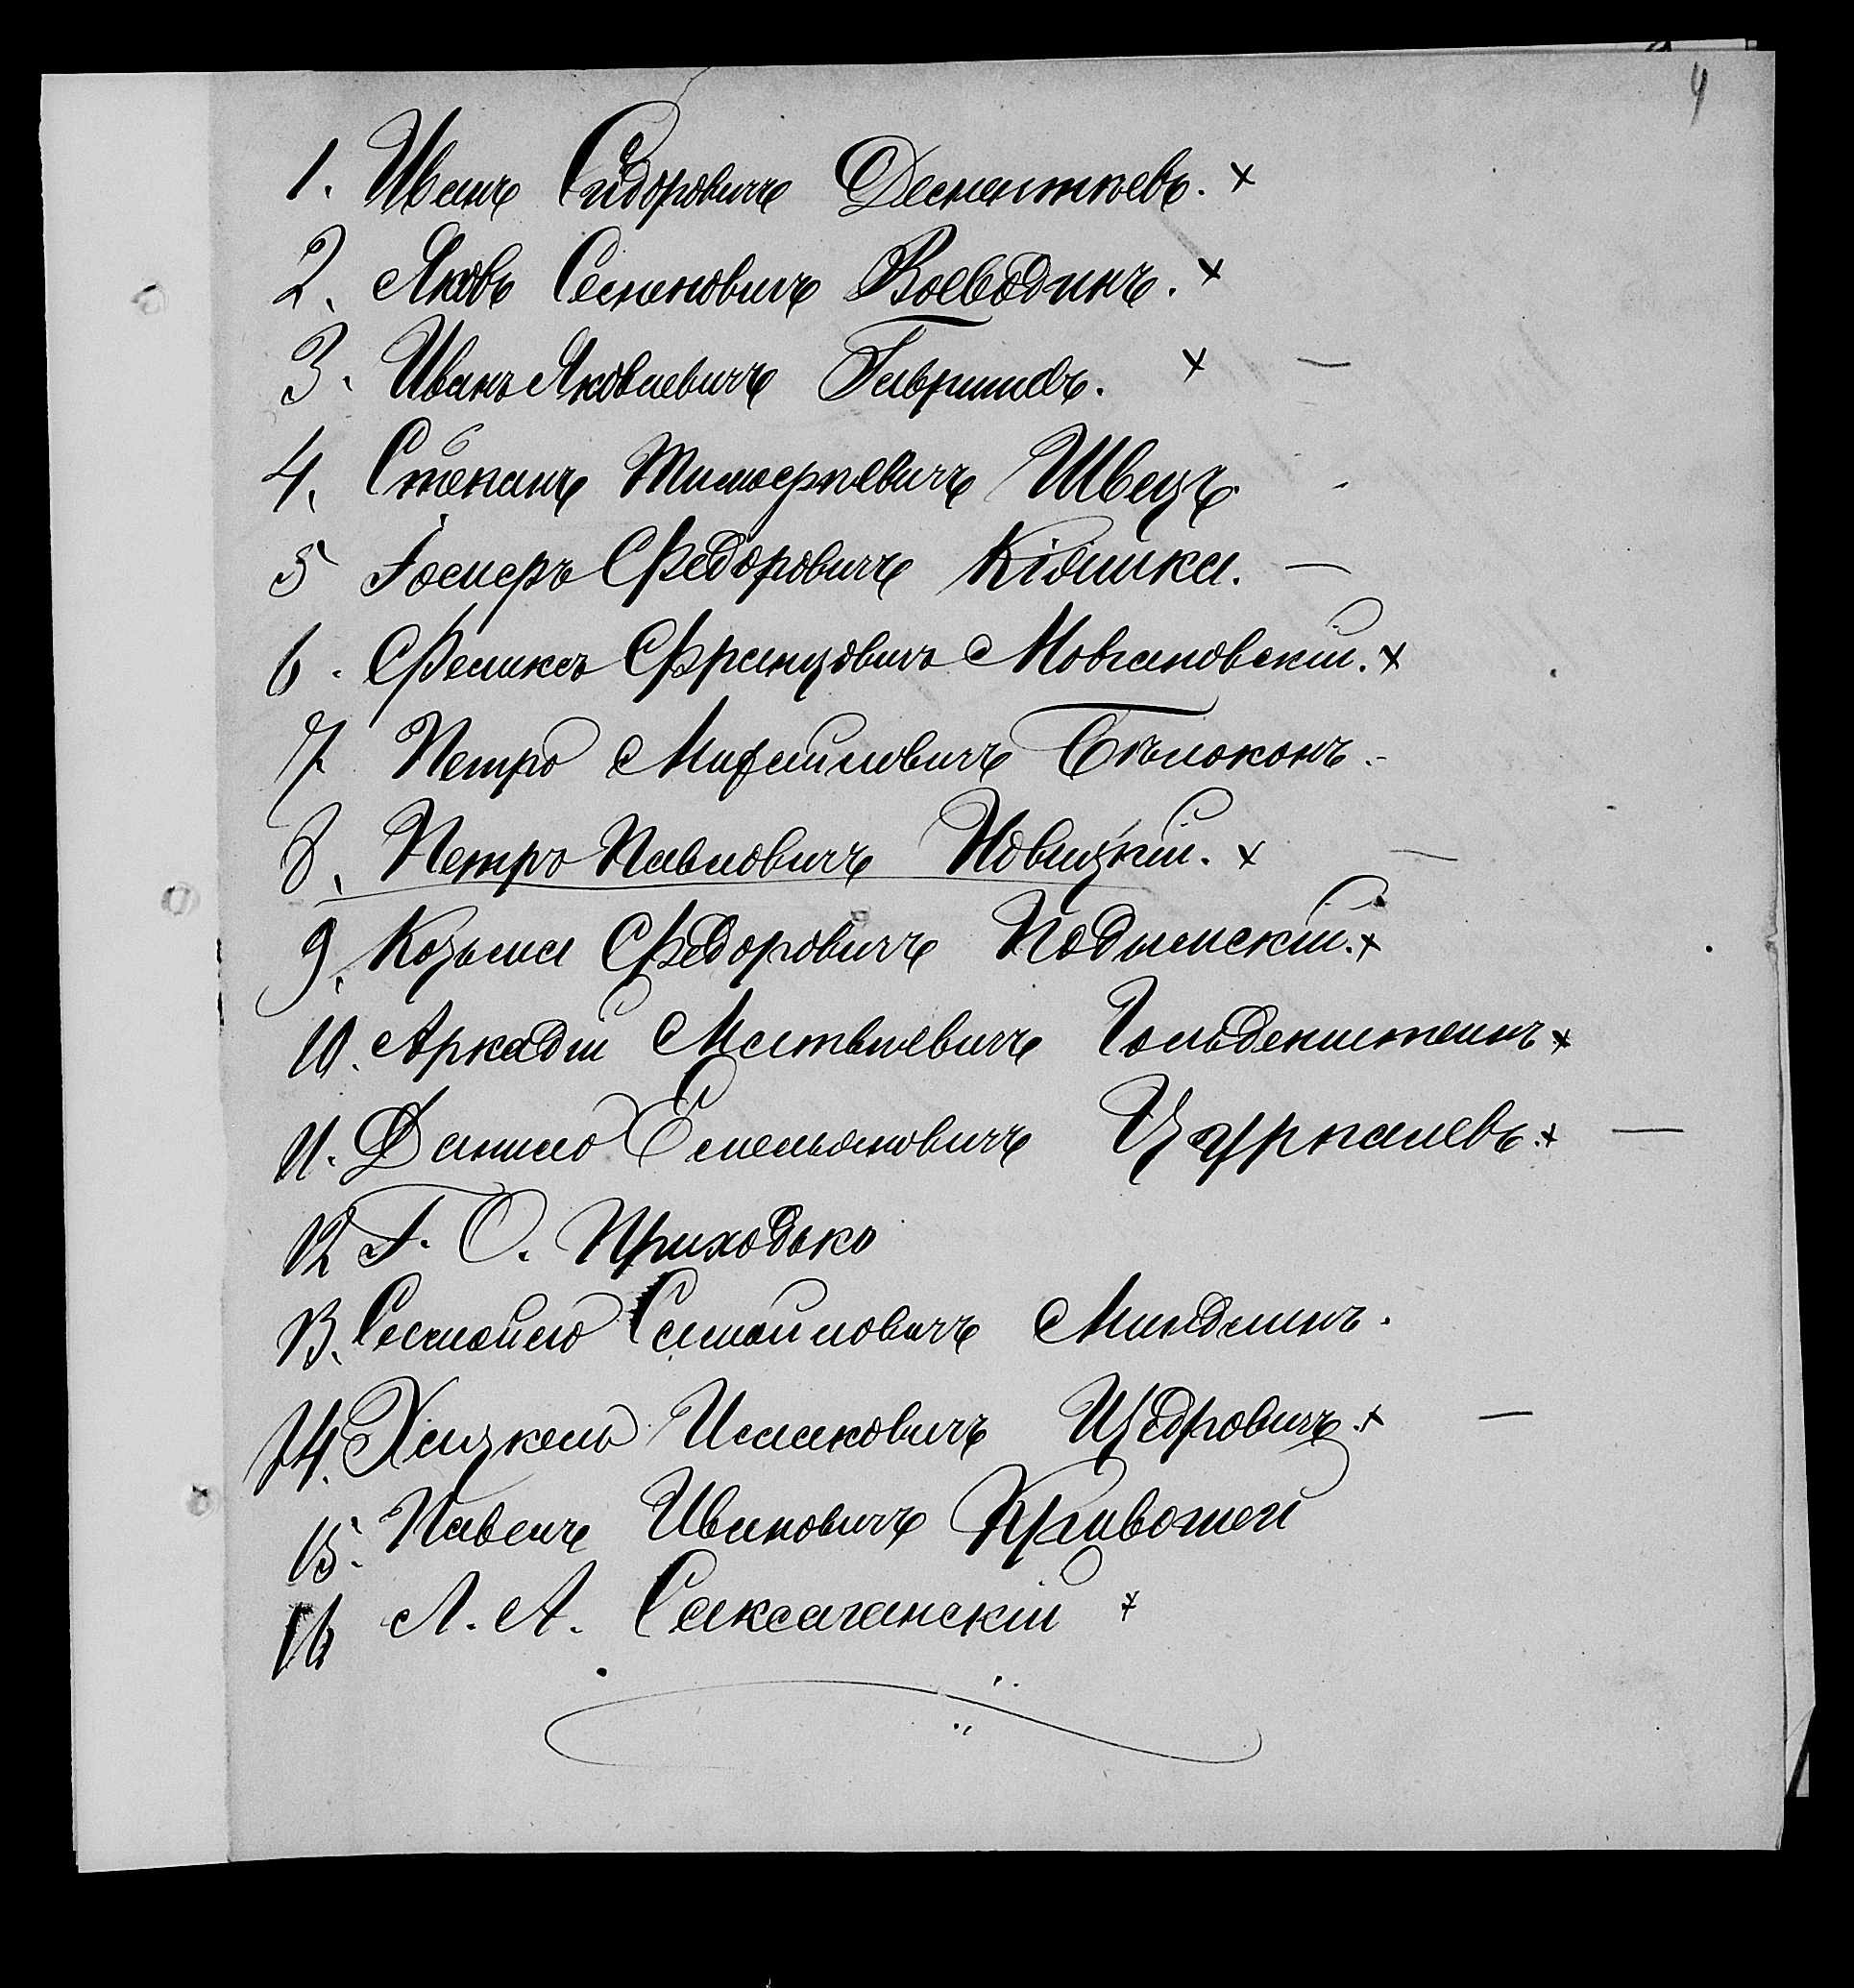 4
1. Иванъ Сидоровичъ Дементьевъ. ×
2. Яковъ Семеновичъ Воеводинъ. ×
3. Иванъ Яковлевичъ Гавришъ. × —
4. Степанъ Тимоѳеевичъ Швецъ
5 Іосифъ Федоровичъ Кіяшка. —
6. Феликсъ Францовичъ Мовчановскій. ×
7 Петръ Михайловичъ Бѣлоконъ.
8. Петръ Павловичъ Новицкій. × —
9. Козьма Федоровичъ Подымскій. ×
10. Аркадій Матвѣевичъ Гольденштейнъ ×
11. Данило Емельяновичъ Цуркалевъ. × —
12 Г. О. Приходько
13. Самойло Самойловичъ Миндлинъ.
14. Хацкель Исааковичъ Щедровичъ. × —
15. Павелъ Ивановичъ Кривошеи
16 Л. А. Саксаганскій ×